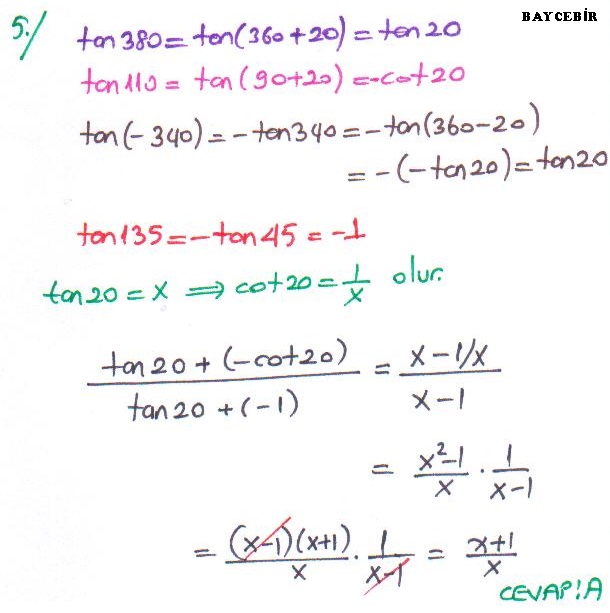 BAYCEBİR
5./ tan380 = tan(360+20) = tan20
tan110 = tan(90+20) = -cot20
tan(-340) = -tan340 = -tan(360-20)
= -(-tan20) = tan20
tan135 = -tan45 = -1
tan20 = x ⟹ cot20 = 1/x olur.
(tan20 + (-cot20))/(tan20 + (-1)) = (x - 1/x)/(x - 1)
= (x²-1)/x · 1/(x-1)
= ((x-1)(x+1))/x · 1/(x-1) = (x+1)/x
CEVAP:A